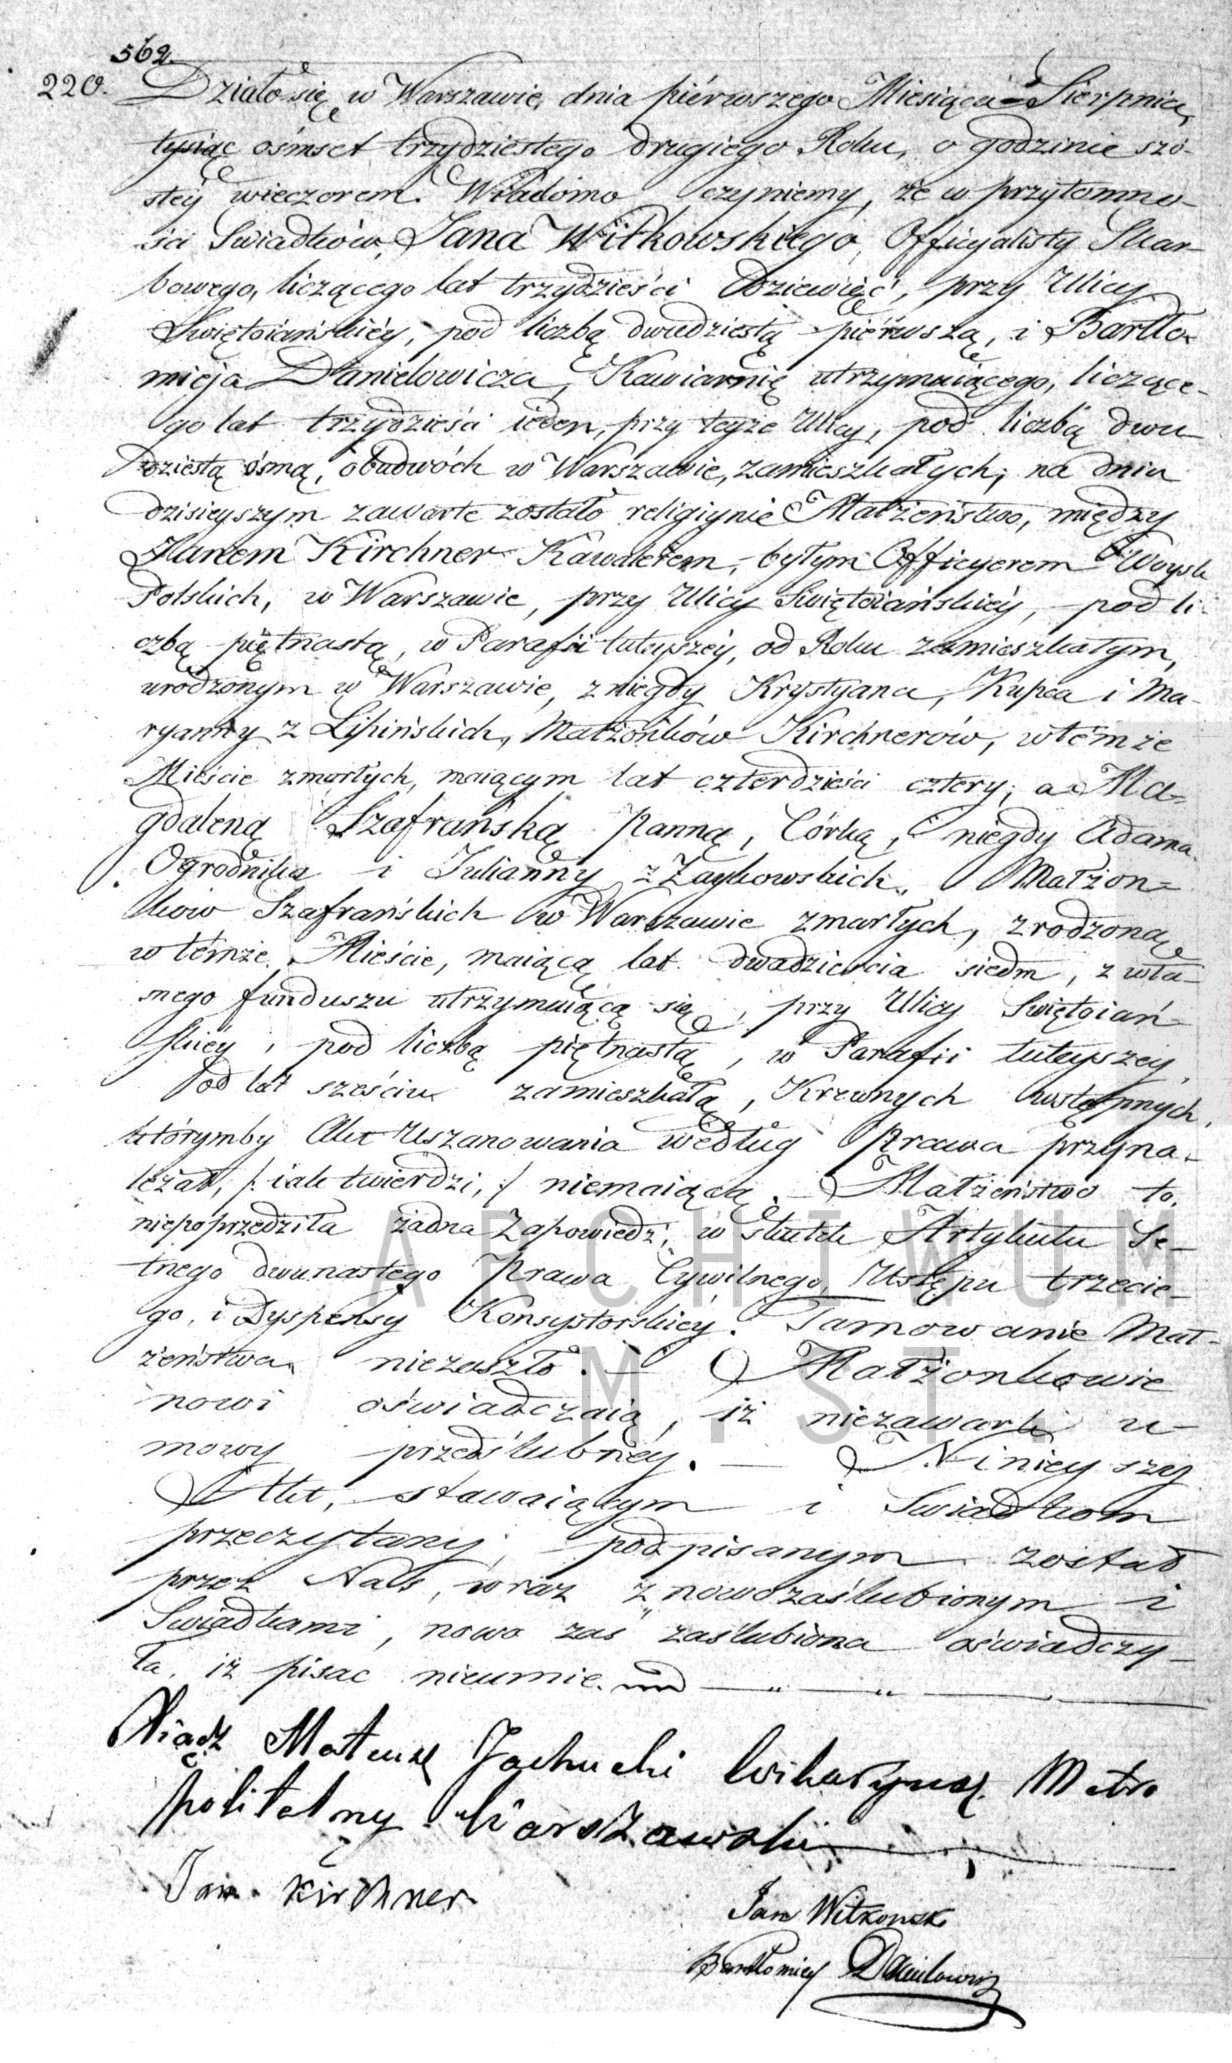 562.
220.
Działo się w Warszawie, dnia piérwszego Miesiąca Sierpnia,
tysiąc ośmset trzydziestego drugiego Roku, o godzinie szó-
stéy wieczorem. Wiadomo czyniemy, że w przytomno-
ści Swiadków, Jana Witkowskiego, Officyalisty Skar-
bowego, liczącego lat trzydzieści dziewięć, przy Ulicy
Swiętoiańskiéy, pod liczbą dwudziestą piérwszą, i Bartło-
mieja Danielowicza, Kawiarnię utrzymuiącego, liczące-
go lat trzydzieści ieden, przy teyże Ulicy, pod liczbą dwu-
dziestą ósmą, obudwóch w Warszawie, zamieszkałych; na dniu
dzisieyszym zawarte zostało religiynie Małżeństwo, między
Janem Kirchner Kawalerem, byłym Officyerem Woysk
Polskich, w Warszawie, przy Ulicy Swiętoiańskiéy, pod li-
czbą piętnastą, w Parafii tuteyszéy, od Roku zamieszkałym,
urodzonym w Warszawie, z niegdy Krystyana, Kupca i Ma-
ryanny z Lipińskich, Małżonków Kirchnerów, w témże
Mieście zmarłych, maiącym lat czterdzieści cztery; a Ma-
gdaleną Szafrańską Panną, Córką, niegdy Adama
Ogrodnika i Julianny z Zaykowskich, Małżon-
ków Szafrańskich w Warszawie zmarłych, zrodzoną
w témże Mieście, maiącą lat dwadzieścia siedm, z wła-
snego funduszu utrzymuiącą się, przy Ulicy Swiętoiań-
skiéy, pod liczbą piętnastą, w Parafii tuteyszey,
od lat sześciu zamieszkałą, Krewnych wstępnych,
którymby Akt Uszanowania według Prawa przyna-
leżał, /: iak twierdzi, :/ niemaiącą. Małżeństwo to,
niepoprzedziła żadna Zapowiedź, w skutek Artykułu Se-
tnego dwunastego Prawa Cywilnego, Ustępu trzecie-
go, i Dyspensy Konsystorskiéy. Tamowanie Mał-
żeństwa niezaszło. Małżonkowie
nowi oświadczaią, iż niezawarli u-
mowy przedślubnéy. Ninieyszy
Akt, stawaiącym i Swiadkom
przeczytany, podpisanym został
przez Nas, wraz z nowozaślubionym i
Swiadkami, nowo zaś zaślubiona oświadczy-
ła, iż pisać nieumie.
Xiądz Mateusz Wikaryusz Metro
politalny Warszawski
Jan Kirchner
Jan Witkowski
Bartłomiey Danilowicz
ARCHIWUM
M. ST.